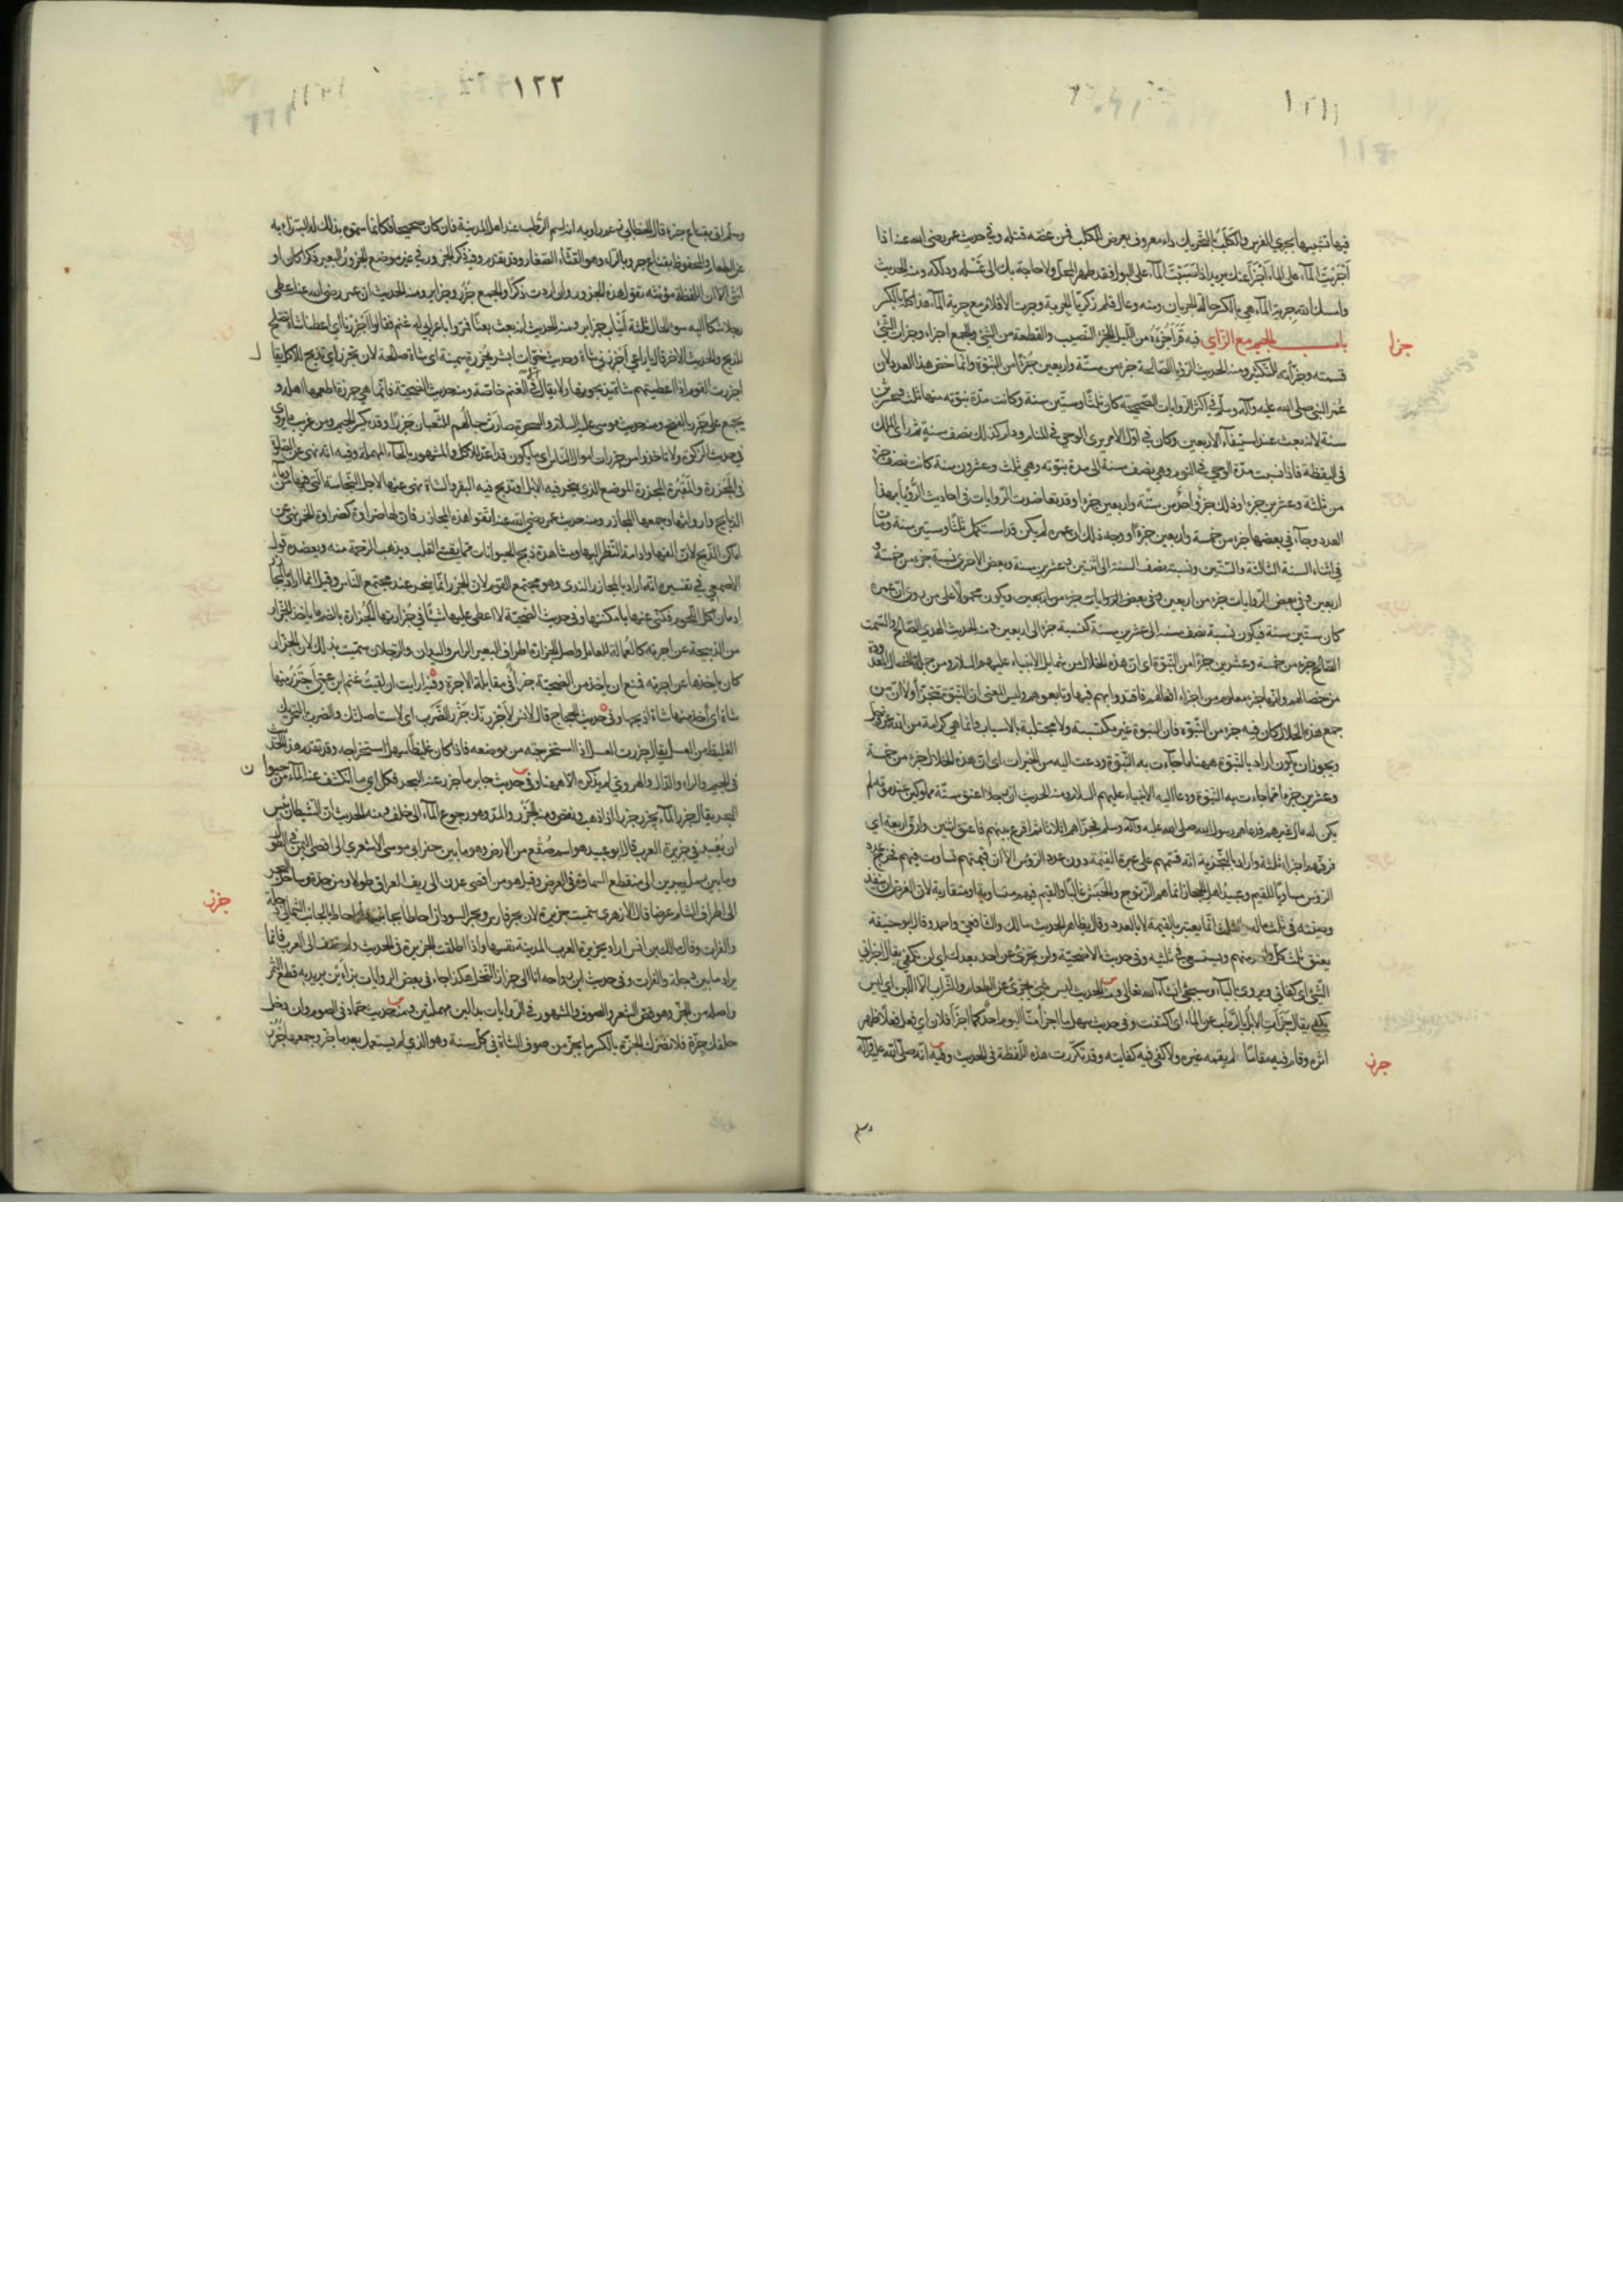 ١٢١
فيها تشبيها بجري الفرس والكلب بالتحريك داء معروف يعرض للكلب فمن عضه قتله وفي حديث عمر رضي الله عنه اذا
اجريت الماء على الماء اجزأ عنك يريد اذا صببت الماء على البول فقد طهر المحل ولا حاجة بك الى غسله ودلكه ومنه الحديث
وامسك الله جرية الماء هي بالكسر حالة الجريان ومنه وعال قلم زكريا الجرية وجرت الاقلام مع جرية الماء هذا كله بالكسر
جزا
باب الجيم مع الزاي فيه قرأ جزءه من الليل الجزء النصيب والقطعة من الشئ والجمع اجزاء وجزأت الشئ
قسمته وجزأته للتكثير ومنه الحديث الرؤيا الصالحة جزء من ستة واربعين جزءا من النبوة وانما خص هذا العدد لان
عمر النبي صلى الله عليه وآله وسلم في اكثر الروايات الصحيحة كان ثلثا وستين سنة وكانت مدة نبوته منها ثلث وعشرين
سنة لانه بعث عند استيفاء الاربعين وكان في اول الامر يرى الوحي في المنام ودام كذلك نصف سنة ثم رأى الملك
في اليقظة فاذا نسبت مدة الوحي في النوم وهي نصف سنة الى مدة نبوته وهي ثلث وعشرون سنة كانت نصف جزء
من ثلثة وعشرين جزءا وذلك جزء واحد من ستة واربعين جزءا وقد تعاضدت الروايات في احاديث الرؤيا بهذا
العدد وجاء في بعضها جزء من خمسة واربعين جزءا ووجه ذلك ان عمره لم يكن قد استكمل ثلثا وستين سنة ومات
في اثناء السنة الثالثة والستين ونسبة نصف السنة الى اثنين وعشرين سنة وبعض الاخرى نسبة جزء من خمسة و
اربعين وفي بعض الروايات جزء من اربعين ويكون محمولا على من روى ان عمره
كان ستين سنة فيكون نسبة نصف سنة الى عشرين سنة كنسبة جزء الى اربعين ومنه الحديث الهدي الصالح والسمت
الصالح جزء من خمسة وعشرين جزءا من النبوة اي ان هذه الخلال من شمايل الانبياء عليهم السلام ومن جملة الخصال المعدودة
من خصالهم وانها جزء معلوم من اجزاء افعالهم فاقتدوا بهم فيها وتابعوهم وليس المعنى ان النبوة تتجزأ ولا ان من
جمع هذه الخلال كان فيه جزء من النبوة فان النبوة غير مكتسبة ولا مجتلبة بالاسباب وانما هي كرامة من الله عز وجل
ويجوز ان يكون اراد بالنبوة ههنا ما جاءت به النبوة ودعت اليه من الخيرات اي ان هذه الخلال جزء من خمسة
وعشرين جزءا مما جاءت به النبوة ودعا اليه الانبياء عليهم السلام ومنه الحديث ان رجلا اعتق ستة مملوكين عند موته لم
يكن له مال غيرهم فدعاهم رسول الله صلى الله عليه وآله وسلم فجزأهم اثلاثا ثم اقرع بينهم فاعتق اثنين وارق اربعة اي
فرقهم اجزاء ثلثة واراد بالتجزية انه قسمهم على عبرة القيمة دون عدد الرؤس الا ان قيمتهم تساوت فيهم فخرج عدد
الرؤس مساويا للقيم وعبيد اهل الحجاز انما هم الزنوج والحبش غالبا والقيم فيهم متساوية او متقاربة لان الغرض ان ينفذ
وصيته في ثلث ماله والثلث انما يعتبر بالقيمة لا بالعدد وقال بظاهر الحديث مالك والشافعي واحمد وقال ابو حنيفة
يعتق ثلث كل واحد منهم ويستسعى في ثلثيه وفي حديث الاضحية ولن تجزئ عن احد بعدك اي لن تكفي يقال اجزاني
الشئ اي كفاني ويروى بالياء وسيجئ ان شاء الله تعالى ومنه الحديث ليس شئ يجزئ عن الطعام والشراب الا اللبن اي ليس
يكفي يقال جزأت الابل بالرطب عن الماء اي اكتفت وفي حديث سهل ما اجزأ منا اليوم احد كما اجزأ فلان اي فعل فعلا ظهر
جزر
اثره وقام فيه مقاما لم يقمه غيره ولا كفى فيه كفايته وقد تكررت هذه اللفظة في الحديث وفيه انه صلى الله عليه وآله
وسلم
١٢٢
وسلم اتي بقناع جزء قال الخطابي زعم راويه انه اسم الرطب عند اهل المدينة فان كان صحيحا فكانما سموه بذلك للاجتزاء به
عن الطعام والمحفوظ بقناع جرو بالراء وهو القثاء الصغار وقد تقدم وفيه ذكر الجزور في غير موضع الجزور البعير ذكرا كان او
انثى الا ان اللفظة مؤنثة تقول هذه الجزور وان اردت ذكرا والجمع جزر وجزاير ومنه الحديث ان عمر رضي الله عنه اعطى
رجلا شكا اليه سوء الحال ثلثة انياب جزاير ومنه الحديث انه بعث بعثا فمروا باعرابي له غنم فقالوا اجزرنا اي اعطنا شاة تصلح
للذبح والحديث الاخر قال يا راعي اجزرني شاة وحديث خوات ابشر بجزرة سمينة اي شاة صالحة لان تجزر اي تذبح للاكل يقال
اجزرت القوم اذا اعطيتهم شاة يذبحونها ولا يقال الا في الغنم خاصة ومنه حديث الضحية فانما هي جزرة اطعمها اهله و
يجمع على جزر بالفتح ومنه حديث موسى عليه السلام والسحرة صارت حبالهم للثعبان جزرا وقد تكسر الجيم ومن غريب ما يروى
في حديث الزكوة ولا تاخذوا من جزرات اموال الناس اي ما يكون قد اعد للاكل والمشهور بالحاء المهملة وفيه انه نهى عن الصلوة
في المجزرة والمقبرة المجزرة الموضع الذي ينحر فيه الابل وتذبح فيه البقر والشاة نهى عنها لاجل النجاسة التي فيها من دماء
الذبايح وارواثها وجمعها المجازر ومنه حديث عمر رضي الله عنه اتقوا هذه المجازر فان لها ضراوة كضراوة الخمر نهى عن
اماكن الذبح لان الفها وادامة النظر اليها ومشاهدة ذبح الحيوانات مما يقسي القلب ويذهب الرحمة منه ويعضده قول
الاصمعي في تفسيره انه اراد بالمجازر الندي وهو مجتمع القوم لان الجزر انما ينحر عند مجتمع الناس وقيل انما اراد بالمجازر
ادمان اكل اللحوم فكنى عنها بامكنتها وفي حديث الضحية لا اعطي عليها شيئا في جزارتها الجزارة بالضم ما ياخذ الجزار
من الذبيحة عن اجرته كالعمالة للعامل واصل الجزارة اطراف البعير الراس واليدان والرجلان سميت بذلك لان الجزار
كان ياخذها عن اجرته فمنع ان ياخذ من الضحية جزءا في مقابلة الاجرة وفيه ارايت ان لقيت غنم ابن عمي اجتزر منها
شاة اي آخذ منها شاة اذبحها وفي حديث الحجاج قال لانس لاجزرنك جزر الضرب اي لاستاصلنك والضرب بالتحريك
الغليظ من العسل يقال جزرت العسل اذا استخرجته من موضعه فاذا كان غليظا سهل استخراجه وقد تقدم هذا الحديث
في الجيم والراء والدال والهروي لم يذكره الا ههنا وفي حديث جابر ما جزر عنه البحر فكل اي ما انكشف عنه الماء من حيوان
البحر يقال جزر الماء يجزر جزرا اذا ذهب ونقص ومنه الجزر والمد وهو رجوع الماء الى خلف ومنه الحديث ان الشيطان يئس
ان يعبد في جزيرة العرب قال ابو عبيد هو اسم صقع من الارض وهو ما بين حفر ابي موسى الاشعري الى اقصى اليمن في الطول
وما بين رمل يبرين الى منقطع السماوة في العرض وقيل هو من اقصى عدن الى ريف العراق طولا ومن جدة وساحل البحر
الى اطراف الشام عرضا قال الازهري سميت جزيرة لان بحر فارس وبحر السودان احاطا بجانبيها واحاط بالجانب الشمالي دجلة
والفرات وقال مالك بن انس اراد بجزيرة العرب المدينة نفسها واذا اطلقت الجزيرة في الحديث ولم تضف الى العرب فانما
جزز
يراد ما بين دجلة والفرات وفي حديث ابن رواحة انا الى جزاز النخل هكذا جاء في بعض الروايات بزاءين يريد به قطع الثمر
واصله من الجز وهو قص الشعر والصوف والمشهور في الروايات بدالين مهملتين ومنه حديث حماد في الصوم وان دخل
حلقك جزة فلا تضرك الجزة بالكسر ما يجز من صوف الشاة في كل سنة وهو الذي لم يستعمل بعد ما جز وجمعها جزز